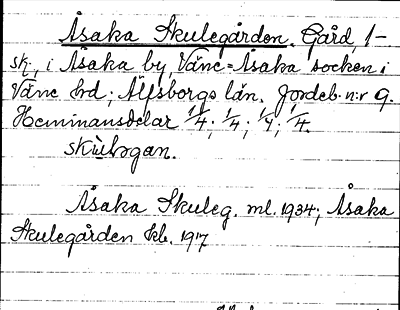 Åsaka Skulegården. Gård, 1-
sk., i Åsaka by Väne=Åsaka socken i
Väne hd; Älfsborgs län. Jordeb. n:r 9.
Hemmansdelar 1/4; 1/4; 1/4; 1/4.
skùlǝgan.
Åsaka Skuleg. ml. 1934; Åsaka
Skulegården kb. 1917